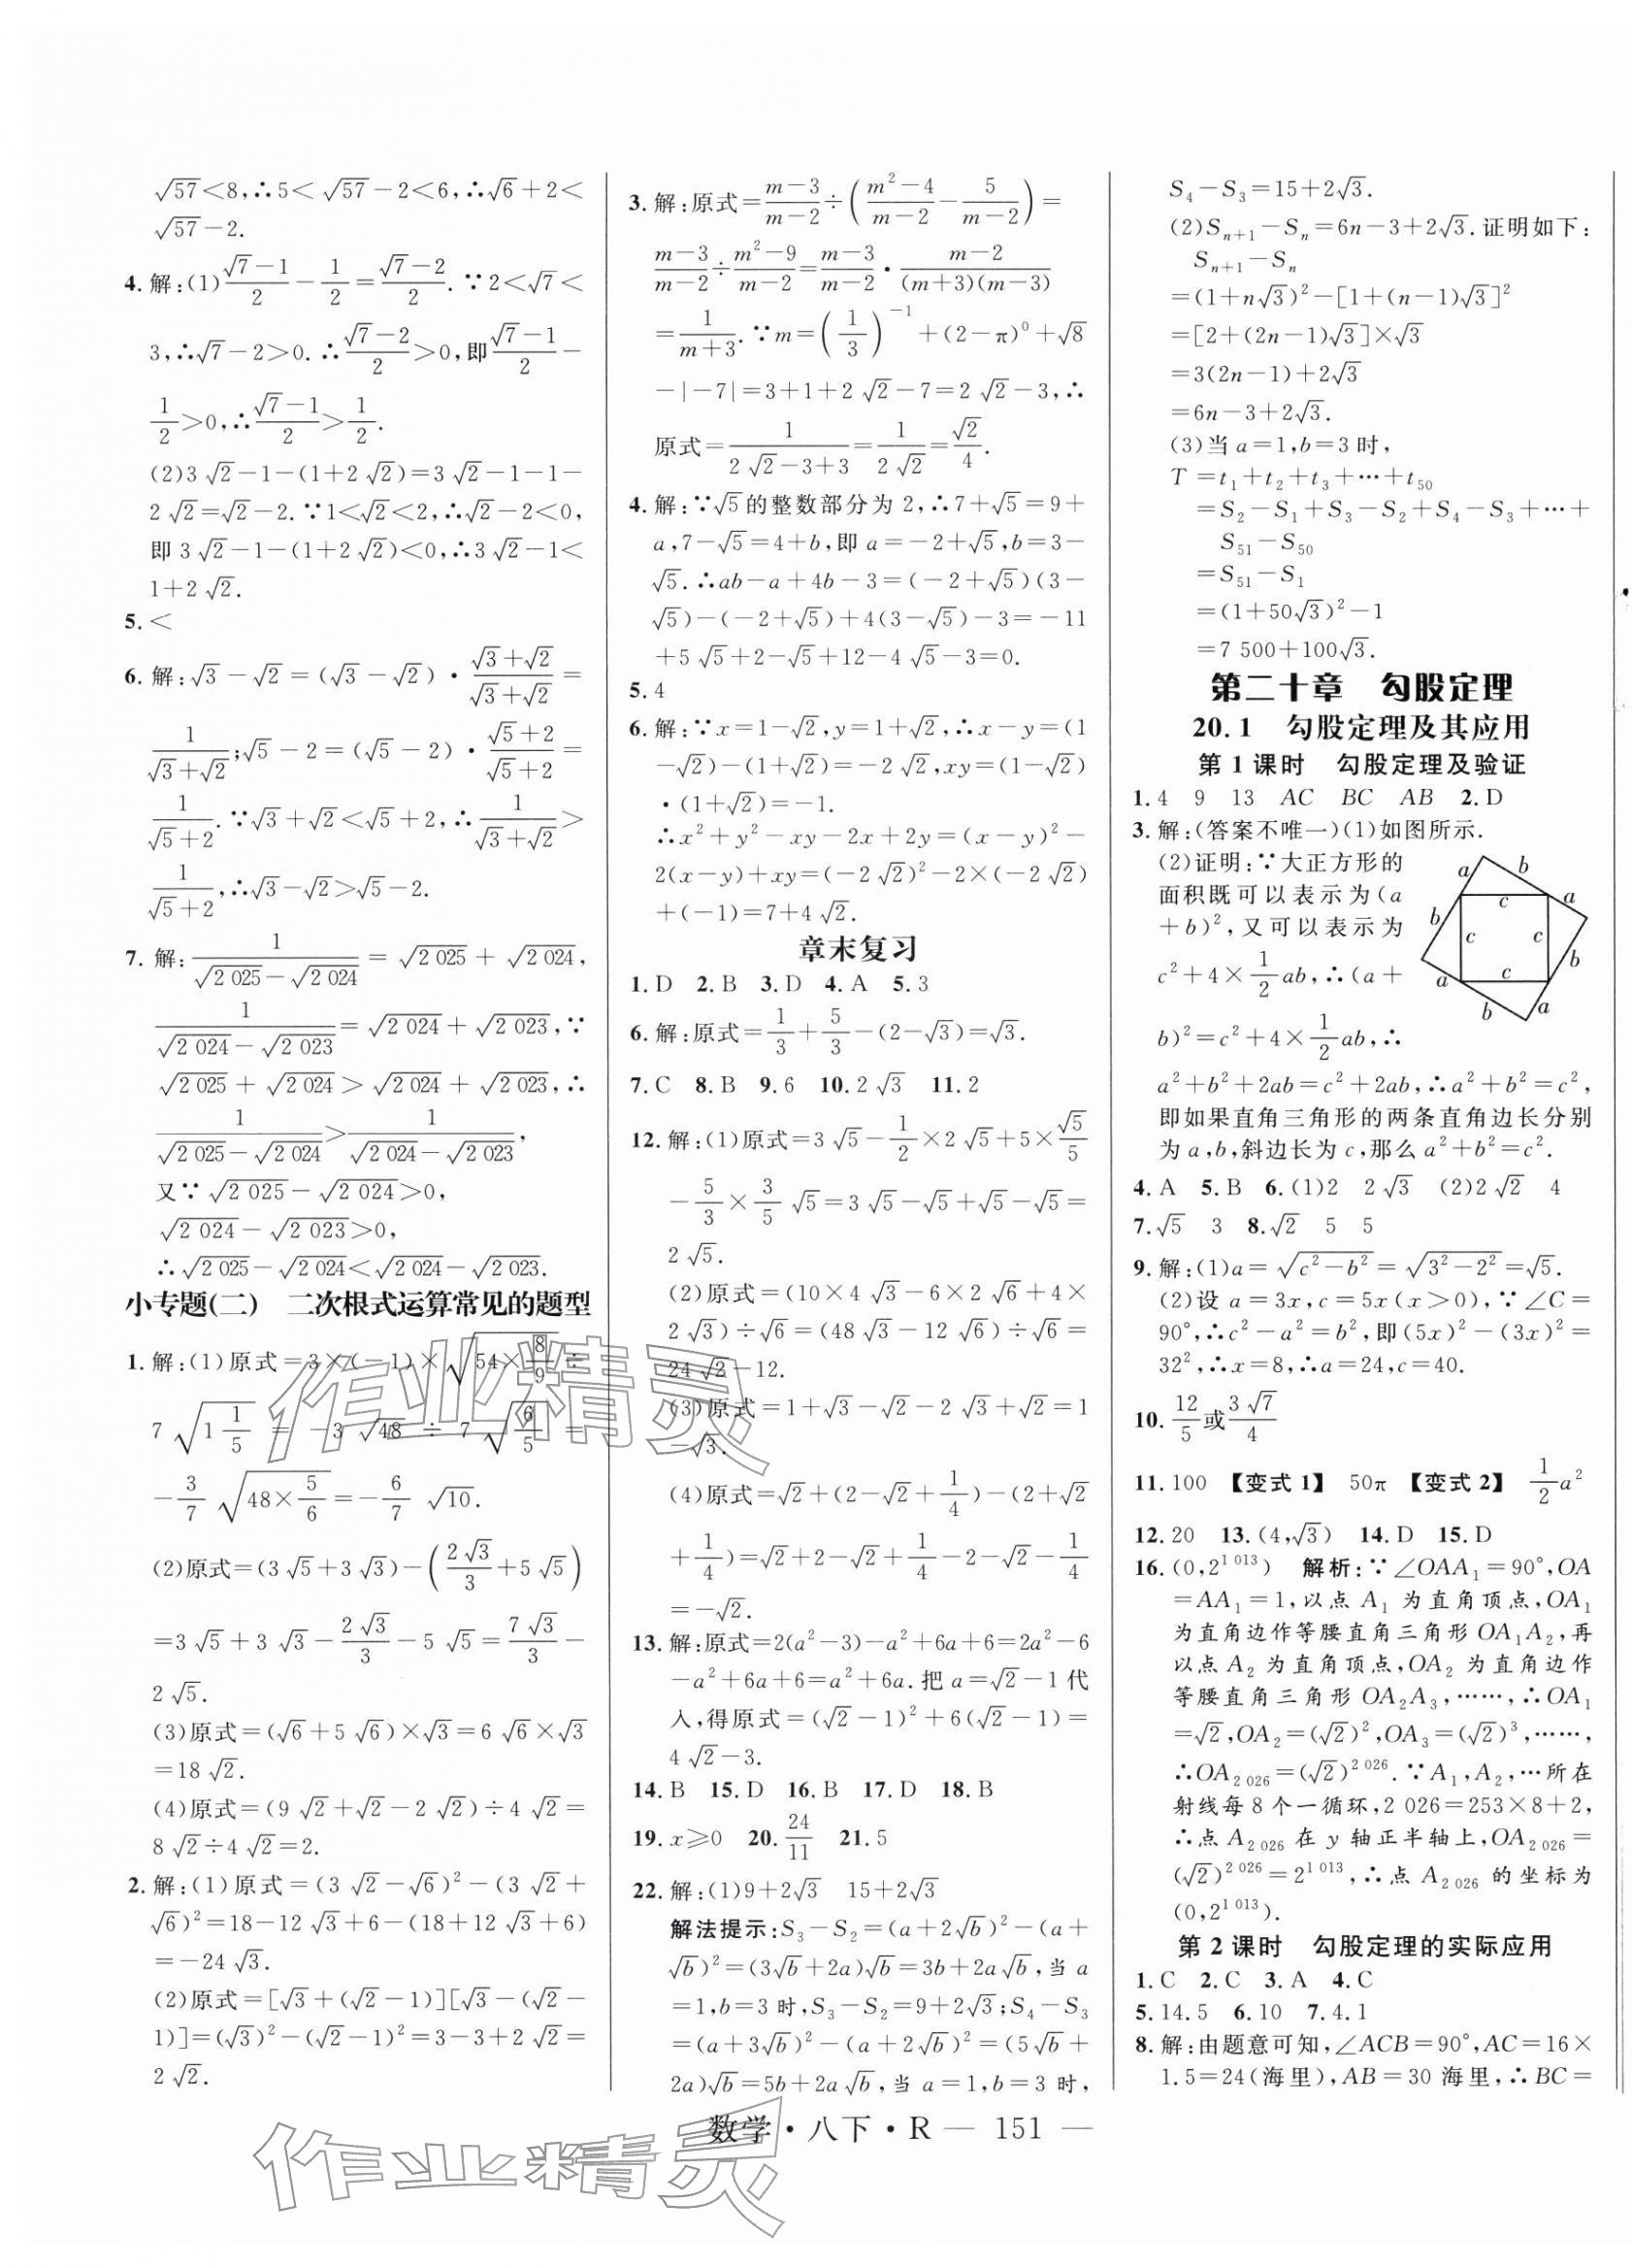 √57<8,∴5<√57-2<6,∴√6+2<
√57-2.
4.解:(1)(√7-1)/2-1/2=(√7-2)/2.∵2<√7<
3,∴√7-2>0.∴(√7-2)/2>0,即(√7-1)/2-
1/2>0,∴(√7-1)/2>1/2.
(2)3√2-1-(1+2√2)=3√2-1-1-
2√2=√2-2.∵1<√2<2,∴√2-2<0,
即3√2-1-(1+2√2)<0,∴3√2-1<
1+2√2.
5.<
6.解:√3-√2=(√3-√2)·(√3+√2)/(√3+√2)=
1/(√3+√2);√5-2=(√5-2)·(√5+2)/(√5+2)=
1/(√5+2).∵√3+√2<√5+2,∴1/(√3+√2)>
1/(√5+2),∴√3-√2>√5-2.
7.解:1/(√2 025-√2 024)=√2 025+√2 024,
1/(√2 024-√2 023)=√2 024+√2 023,∵
√2 025+√2 024>√2 024+√2 023,∴
1/(√2 025-√2 024)>1/(√2 024-√2 023),
又∵√2 025-√2 024>0,
√2 024-√2 023>0,
∴√2 025-√2 024<√2 024-√2 023.
小专题(二) 二次根式运算常见的题型
1.解:(1)原式=3×(-1)×√(54×8/9)÷
7√(1 1/5)=-3√48÷7√(6/5)=
-3/7√(48×5/6)=-6/7√10.
(2)原式=(3√5+3√3)-(2√3/3+5√5)
=3√5+3√3-2√3/3-5√5=7√3/3-
2√5.
(3)原式=(√6+5√6)×√3=6√6×√3
=18√2.
(4)原式=(9√2+√2-2√2)÷4√2=
8√2÷4√2=2.
2.解:(1)原式=(3√2-√6)²-(3√2+
√6)²=18-12√3+6-(18+12√3+6)
=-24√3.
(2)原式=[√3+(√2-1)][√3-(√2-
1)]=(√3)²-(√2-1)²=3-3+2√2=
2√2.
3.解:原式=(m-3)/(m-2)÷((m²-4)/(m-2)-5/(m-2))=
(m-3)/(m-2)÷(m²-9)/(m-2)=(m-3)/(m-2)·(m-2)/((m+3)(m-3))
=1/(m+3).∵m=(1/3)⁻¹+(2-π)⁰+√8
-|-7|=3+1+2√2-7=2√2-3,∴
原式=1/(2√2-3+3)=1/(2√2)=√2/4.
4.解:∵√5的整数部分为2,∴7+√5=9+
a,7-√5=4+b,即a=-2+√5,b=3-
√5.∴ab-a+4b-3=(-2+√5)(3-
√5)-(-2+√5)+4(3-√5)-3=-11
+5√5+2-√5+12-4√5-3=0.
5.4
6.解:∵x=1-√2,y=1+√2,∴x-y=(1
-√2)-(1+√2)=-2√2,xy=(1-√2)
·(1+√2)=-1.
∴x²+y²-xy-2x+2y=(x-y)²-
2(x-y)+xy=(-2√2)²-2×(-2√2)
+(-1)=7+4√2.
章末复习
1.D 2.B 3.D 4.A 5.3
6.解:原式=1/3+5/3-(2-√3)=√3.
7.C 8.B 9.6 10.2√3 11.2
12.解:(1)原式=3√5-1/2×2√5+5×√5/5
-5/3×3/5√5=3√5-√5+√5-√5=
2√5.
(2)原式=(10×4√3-6×2√6+4×
2√3)÷√6=(48√3-12√6)÷√6=
24√2-12.
(3)原式=1+√3-√2-2√3+√2=1
-√3.
(4)原式=√2+(2-√2+1/4)-(2+√2
+1/4)=√2+2-√2+1/4-2-√2-1/4
=-√2.
13.解:原式=2(a²-3)-a²+6a+6=2a²-6
-a²+6a+6=a²+6a.把a=√2-1代
入,得原式=(√2-1)²+6(√2-1)=
4√2-3.
14.B 15.D 16.B 17.D 18.B
19.x≥0 20.24/11 21.5
22.解:(1)9+2√3 15+2√3
解法提示:S₃-S₂=(a+2√b)²-(a+
√b)²=(3√b+2a)√b=3b+2a√b,当a
=1,b=3时,S₃-S₂=9+2√3;S₄-S₃
=(a+3√b)²-(a+2√b)²=(5√b+
2a)√b=5b+2a√b,当a=1,b=3时,
S₄-S₃=15+2√3.
(2)Sₙ₊₁-Sₙ=6n-3+2√3.证明如下:
Sₙ₊₁-Sₙ
=(1+n√3)²-[1+(n-1)√3]²
=[2+(2n-1)√3]×√3
=3(2n-1)+2√3
=6n-3+2√3.
(3)当a=1,b=3时,
T=t₁+t₂+t₃+…+t₅₀
=S₂-S₁+S₃-S₂+S₄-S₃+…+
S₅₁-S₅₀
=S₅₁-S₁
=(1+50√3)²-1
=7 500+100√3.
第二十章 勾股定理
20.1 勾股定理及其应用
第1课时 勾股定理及验证
1.4 9 13 AC BC AB 2.D
3.解:(答案不唯一)(1)如图所示.
(2)证明:∵大正方形的
面积既可以表示为(a
+b)²,又可以表示为
c²+4×1/2ab,∴(a+
b)²=c²+4×1/2ab,∴
a b
c a
b c c
c b
a
b a
a²+b²+2ab=c²+2ab,∴a²+b²=c²,
即如果直角三角形的两条直角边长分别
为a,b,斜边长为c,那么a²+b²=c².
4.A 5.B 6.(1)2 2√3 (2)2√2 4
7.√5 3 8.√2 5 5
9.解:(1)a=√(c²-b²)=√(3²-2²)=√5.
(2)设a=3x,c=5x(x>0),∵∠C=
90°,∴c²-a²=b²,即(5x)²-(3x)²=
32²,∴x=8,∴a=24,c=40.
10.12/5或3√7/4
11.100 【变式1】 50π 【变式2】 1/2a²
12.20 13.(4,√3) 14.D 15.D
16.(0,2¹ ⁰¹³) 解析:∵∠OAA₁=90°,OA
=AA₁=1,以点A₁为直角顶点,OA₁
为直角边作等腰直角三角形OA₁A₂,再
以点A₂为直角顶点,OA₂为直角边作
等腰直角三角形OA₂A₃,……,∴OA₁
=√2,OA₂=(√2)²,OA₃=(√2)³,……,
∴OA₂ ₀₂₆=(√2)² ⁰²⁶.∵A₁,A₂,…所在
射线每8个一循环,2 026=253×8+2,
∴点A₂ ₀₂₆在y轴正半轴上,OA₂ ₀₂₆=
(√2)² ⁰²⁶=2¹ ⁰¹³,∴点A₂ ₀₂₆的坐标为
(0,2¹ ⁰¹³).
第2课时 勾股定理的实际应用
1.C 2.C 3.A 4.C
5.14.5 6.10 7.4.1
8.解:由题意可知,∠ACB=90°,AC=16×
1.5=24(海里),AB=30海里,∴BC=
数学·八下·R — 151 —
作业精灵
作业精灵